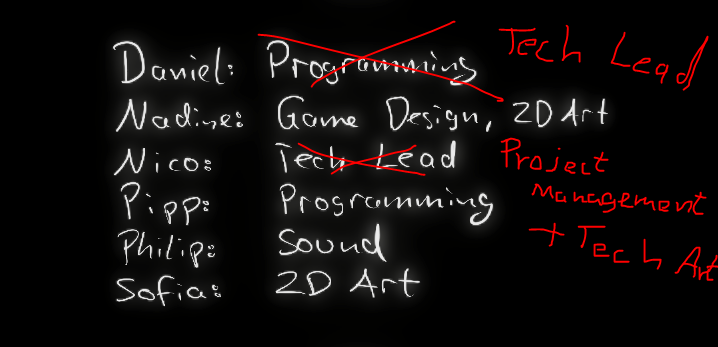 Daniel: Programming Tech Lead
Nadine: Game Design, 2D Art
Nico: Tech Lead Project Management + Tech Art
Pipp: Programming
Philip: Sound
Sofia: 2D Art